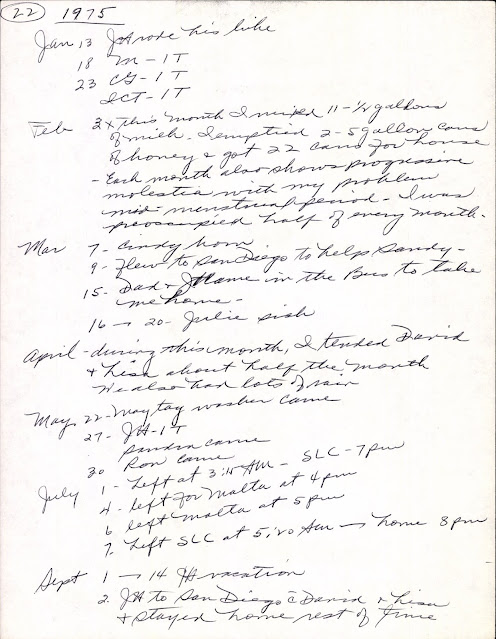 22 1975
Jan 13 JH rode his bike
18 M - 1T
23 CG - 1T
ICT - 1T
Feb 2x this month I mixed 11-1/2 gallons
of milk. I emptied 2-5 gallon cans
of honey & got 22 cans for house
- Each month also shows progressive
molestia with my problem
mid-menstrual period - I was
preoccupied half of every month.
Mar 7 - Cindy born
9 - flew to San Diego to help Sandy -
15 - Dad & JH came in the Bus to take
me home -
16 → 20 - Julie sick
April - during this month, I tended David
& Lisa about half the month
We also had lots of rain
May 22 - Maytag washer came
27 - JH - 1T
Sandra came
30 Ron came
July 1 - Left at 3:15 AM - SLC - 7pm
4 - left for Malta at 4pm
6 left Malta at 5pm
7 Left SLC at 5:20 AM → home 8pm
Sept 1 → 14 JH vacation
2. JH to San Diego c̄ David & Lisa
& stayed home rest of time